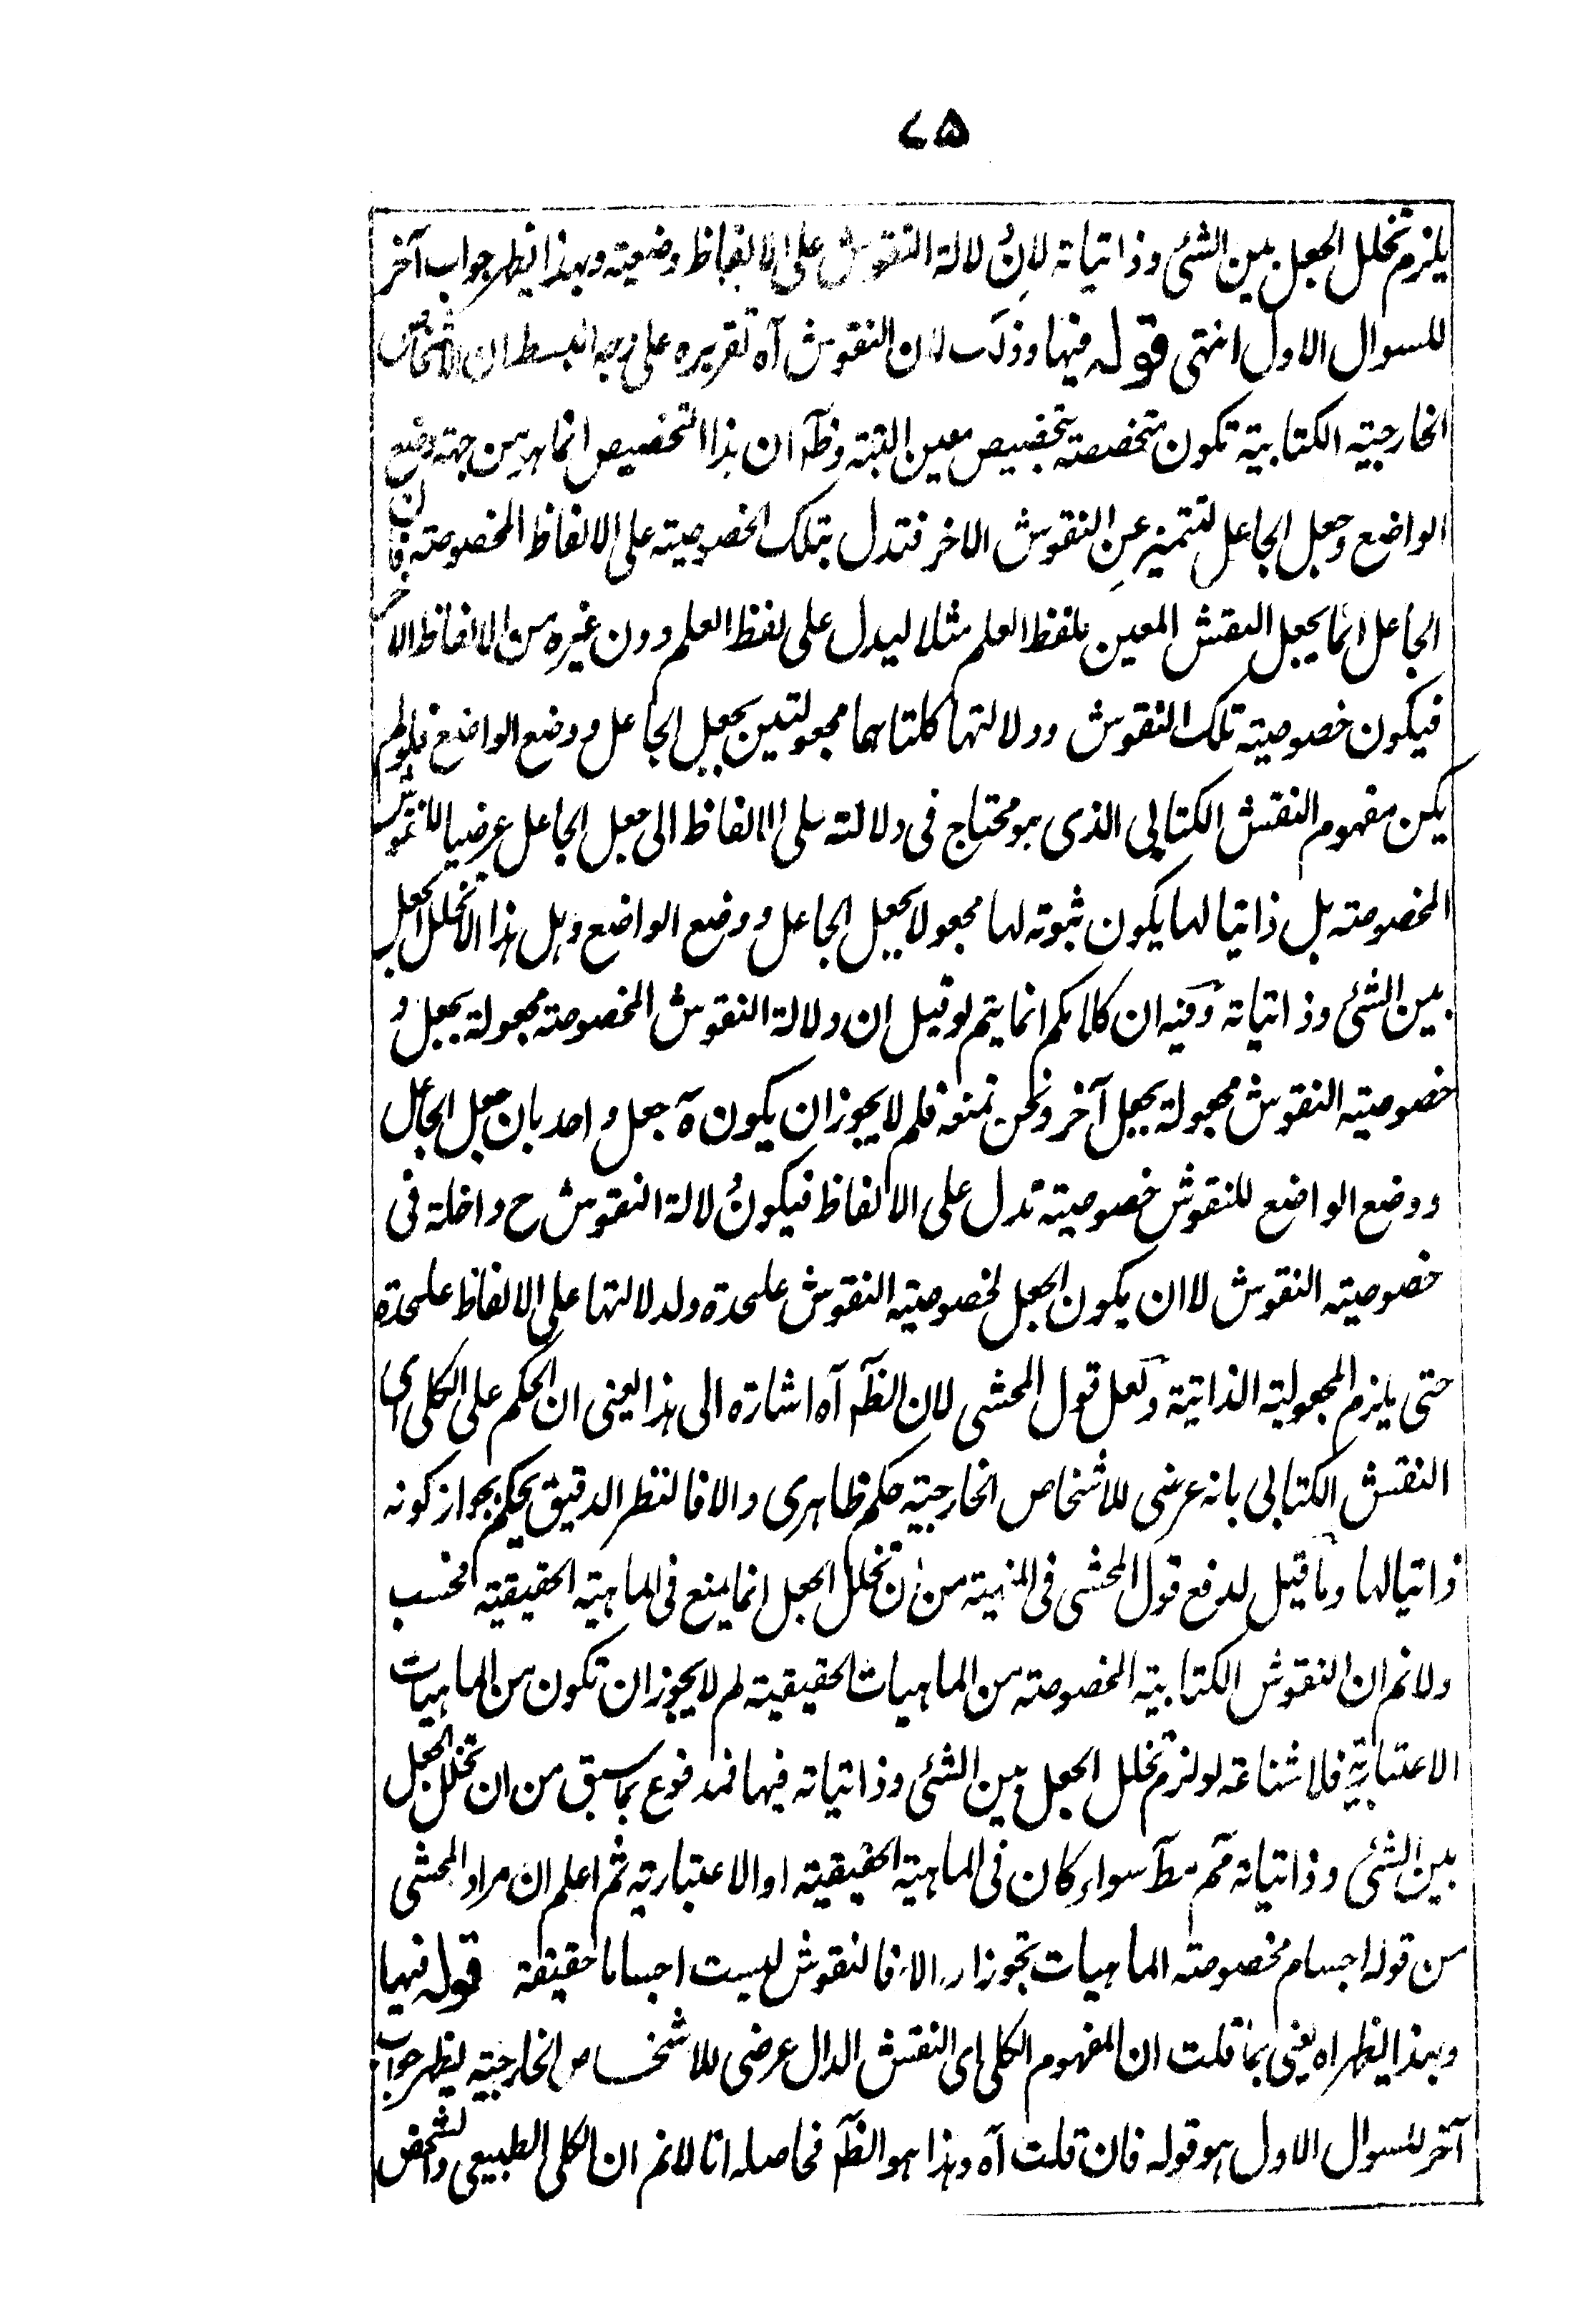 ۷۵
يلزم تخلل الجعل بين الشئ وذاتياته لان دلالة النقوش على الالفاظ وضعية وبهذا يظهر جواب آخر
للسوال الاول انتهى قوله فيها وذلك لان النقوش آه تقريره على وجه البسط ان الاشخاص
الخارجية الكتابية تكون متخصصة بتخصيص معين البتة وظآ ان هذا التخصيص انما هو من جهة وضع
الواضع وجعل الجاعل لتتميز عن النقوش الاخر فتدل بتلك الخصوصية على الالفاظ المخصوصة فان
الجاعل انما يجعل النقش المعين بلفظ العلم مثلا ليدل على لفظ العلم دون غيره من الالفاظ الاخر
فيكون خصوصية تلك النقوش ودلالتها كلتاهما مجعولتين بجعل الجاعل ووضع الواضع فلو لم
يكن مفهوم النقش الكتابي الذى هو محتاج فى دلالته على الالفاظ الى جعل الجاعل عرضيا للنقوش
المخصوصة بل ذاتيا لها يكون ثبوته لها مجعولا بجعل الجاعل ووضع الواضع وهل هذا الا تخلل الجعل
بين الشئ وذاتياته وفيه ان كلامكم انما يتم لو قيل ان دلالة النقوش المخصوصة مجعولة بجعل و
خصوصية النقوش مجعولة بجعل آخر ونحن نمنعه فلم لا يجوز ان يكون ة جعل واحد بان جعل الجاعل
ووضع الواضع للنقوش خصوصية تدل على الالفاظ فيكون دلالة النقوش ح داخلة فى
خصوصية النقوش لا ان يكون الجعل لخصوصية النقوش علىحدة ولدلالتها على الالفاظ علىحدة
حتى يلزم المجعولية الذاتية ولعل قول المحشى لان الظآ آه اشارة الى هذا يعنى ان الحكم على الكلى اى
النقش الكتابى بانه عرضى للاشخاص الخارجية حكم ظاهرى والا فالنظر الدقيق يحكم بجواز كونه
ذاتيا لها وما قيل لدفع قول المحشى فى المنهية من ان تخلل الجعل انما يمنع فى الماهية الحقيقية فحسب
ولانم ان النقوش الكتابية المخصوصة من الماهيات الحقيقية لم لا يجوز ان تكون من الماهيات
الاعتبارية فلا شناعة لو لزم تخلل الجعل بين الشئ وذاتياته فيها فمدفوع بما سبق من ان تخلل الجعل
بين الشئ وذاتياته مم مطآ سواء كان فى الماهية الحقيقية او الاعتبارية ثم اعلم ان مراد المحشى
من قوله اجسام مخصوصة الماهيات تجوزا والا فالنقوش ليست اجساما حقيقة قوله فيها
وبهذا يظهر اه يعنى بما قلت ان المفهوم الكلى اى النقش الدال عرضى للاشخاص الخارجية يظهر جواب
آخر للسوال الاول هو قوله فان قلت آه وهذا هو الظآ فحاصله انا لانم ان الكلى الطبيعى والشخص